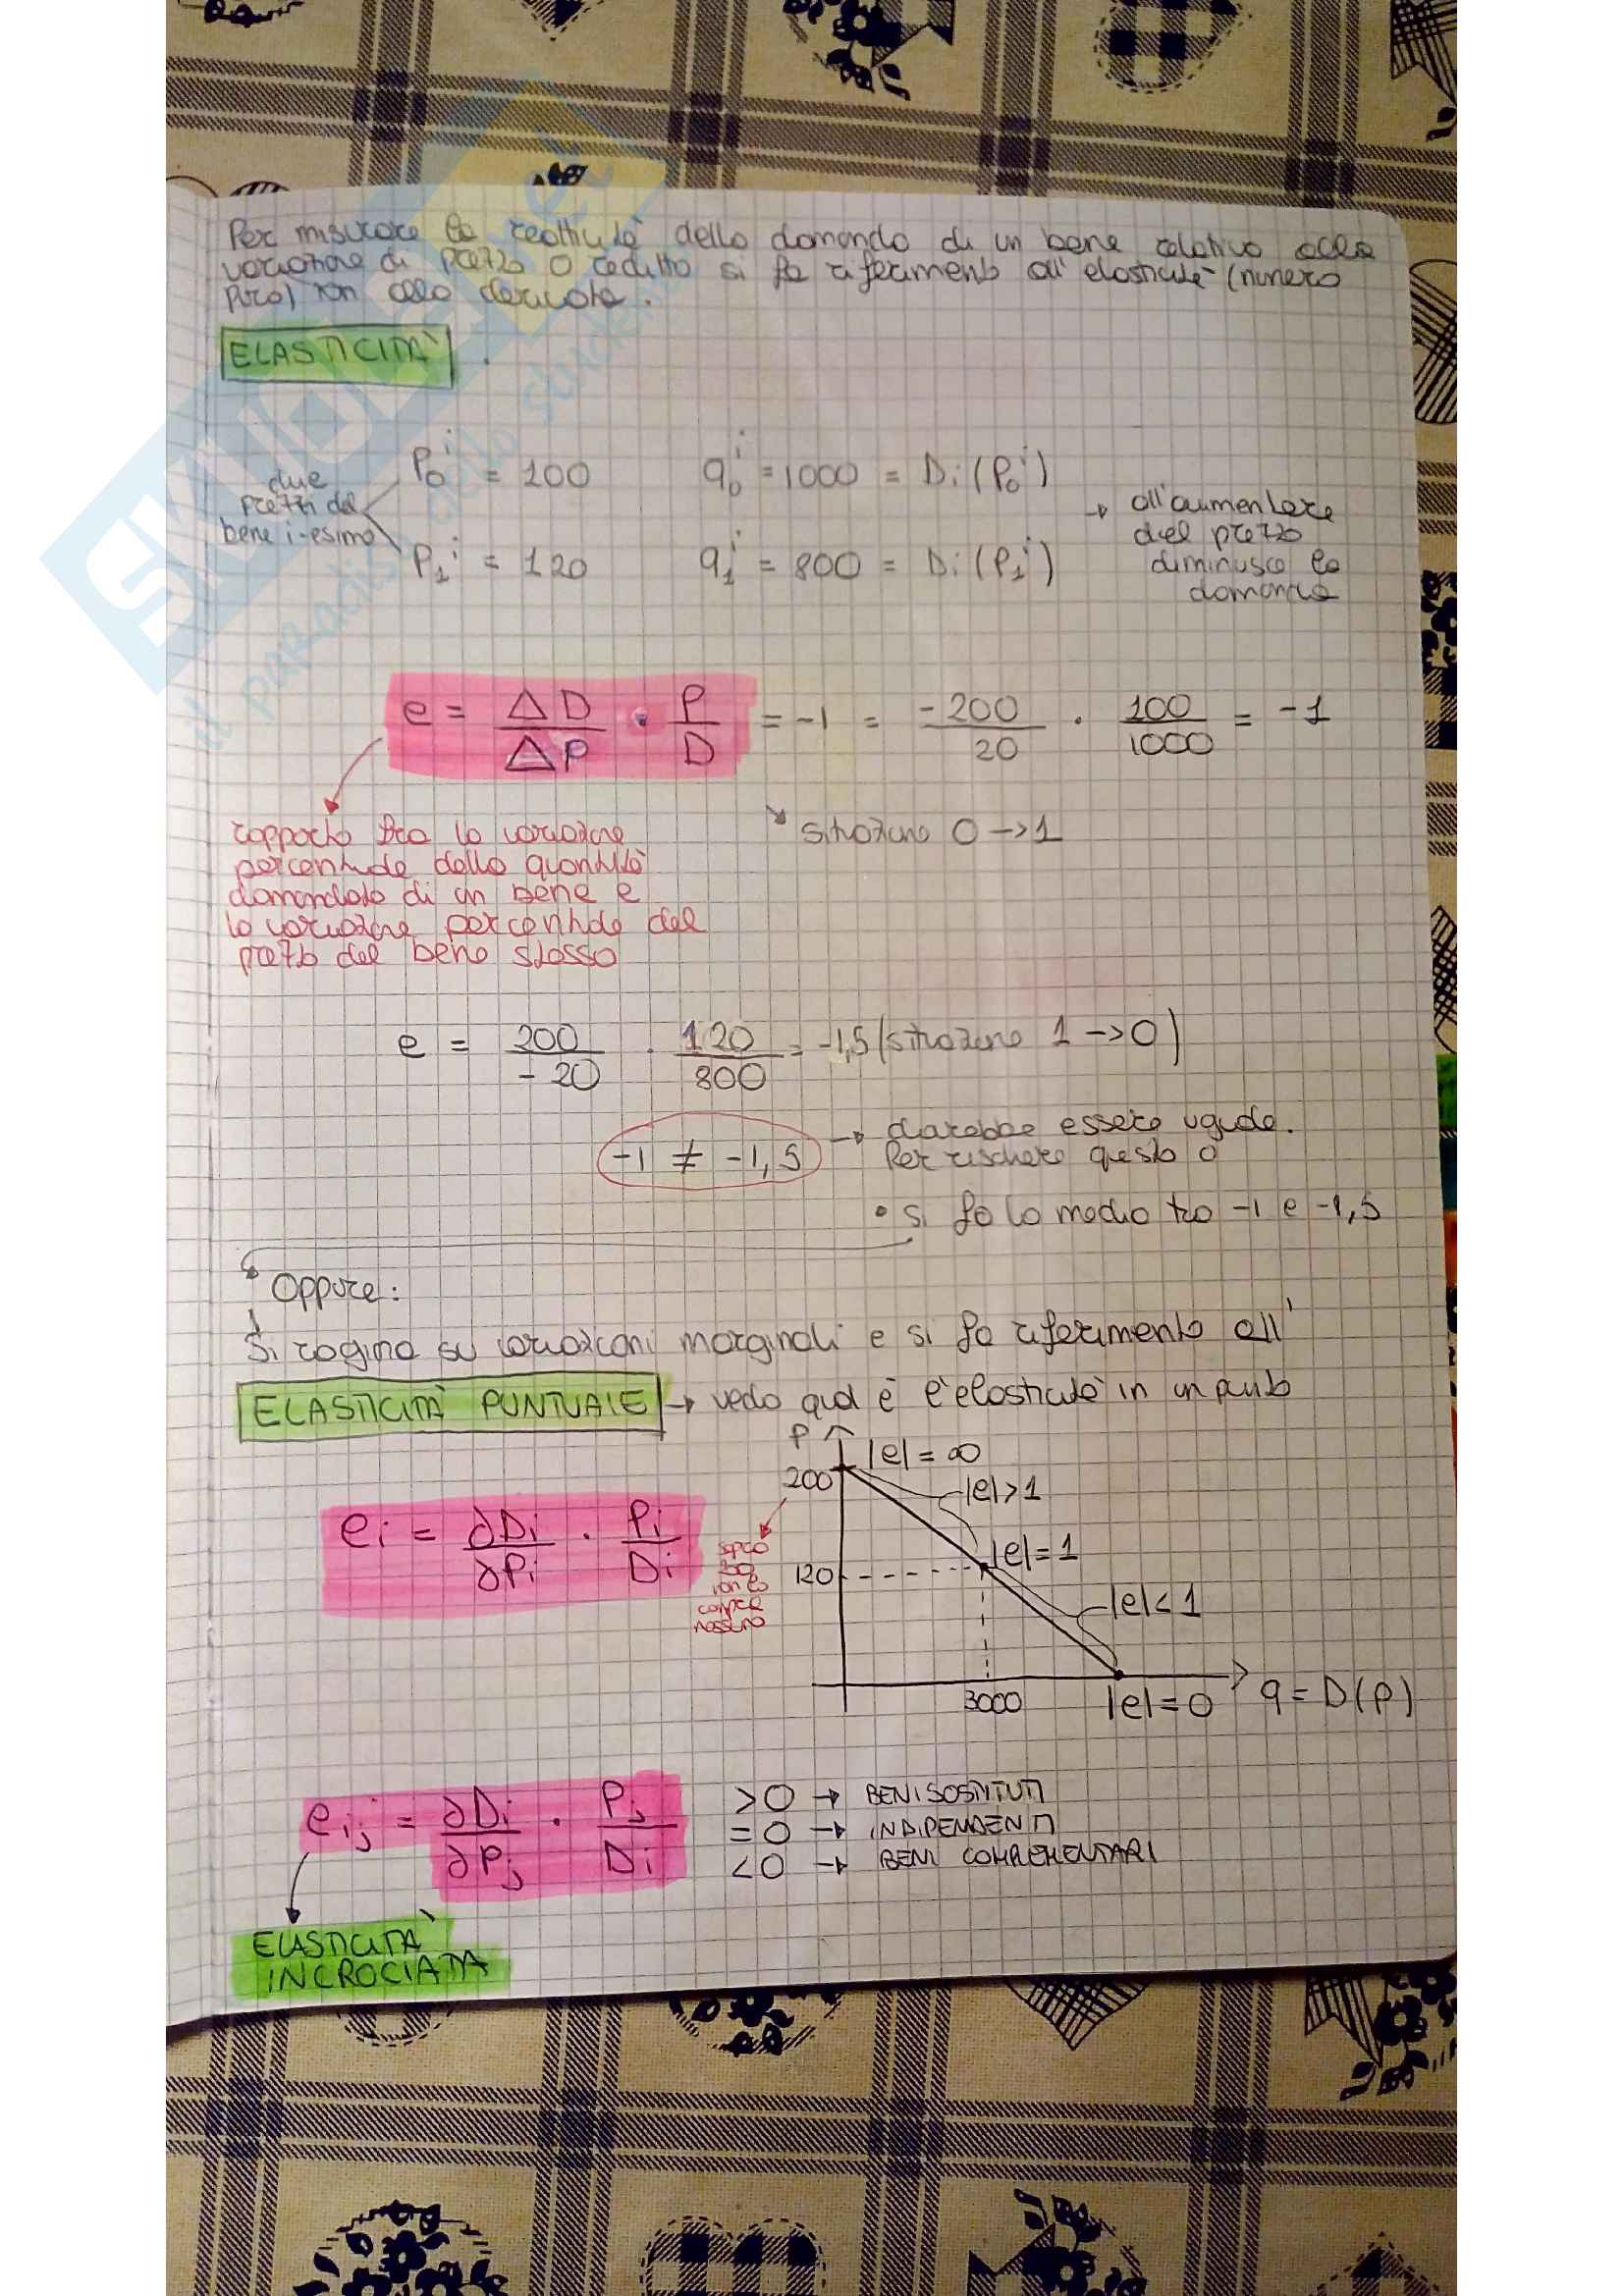 Per misurare la reattività della domanda di un bene relativa alla
variazione di prezzo o reddito si fa riferimento all'elasticità (numero
puro) non alla derivata.
ELASTICITÀ
due prezzi del bene i-esimo
P₀ⁱ = 100 q₀ⁱ = 1000 = Di (P₀ⁱ)
P₁ⁱ = 120 q₁ⁱ = 800 = Di (P₁ⁱ)
→ all'aumentare
del prezzo
diminuisce la
domanda
e = ΔD/ΔP · P/D = -1 = -200/20 · 100/1000 = -1
situazione 0 → 1
rapporto tra la variazione
percentuale della quantità
domandata di un bene e
la variazione percentuale del
prezzo del bene stesso
e = 200/-20 · 120/800 = -1,5 (situazione 1 → 0)
-1 ≠ -1,5 → dovrebbe essere uguale.
Per questo o
• si fa la media tra -1 e -1,5
Oppure:
Si ragiona su variazioni marginali e si fa riferimento all'
ELASTICITÀ PUNTUALE → vedo qual è l'elasticità in un punto
P
200 |e| = ∞
|e| > 1
ei = ∂Di/∂Pi · Pi/Di
sopra
200
non lo
compra
nessuno
120 |e| = 1
|e| < 1
3000 |e| = 0 q = D(p)
eij = ∂Di/∂Pj · Pj/Di
>0 → BENI SOSTITUTI
=0 → INDIPENDENTI
<0 → BENI COMPLEMENTARI
ELASTICITÀ
INCROCIATA
SKUOLA.net
il paradiso dello studente